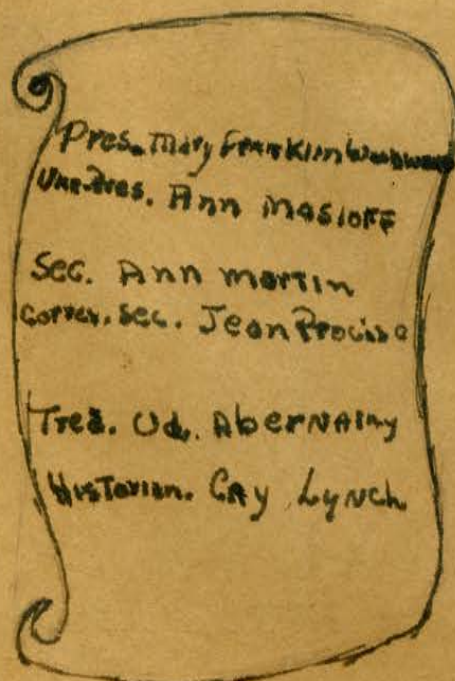 Pres. Mary Franklin
Vice-Pres. Ann Masloff
Sec. Ann Martin
Corres. Sec. Jean
Tres. Abernathy
Historian. Cay Lynch